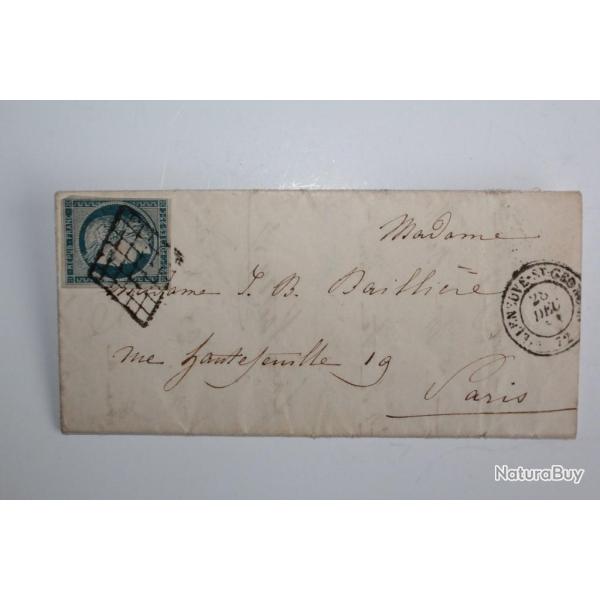 REPUB. FRANC.
Madame
Madame J. B. Baillière
rue hautefeuille 19
Paris
LENEUVE-ST-GEOR
28
DEC
72
NaturaBuy